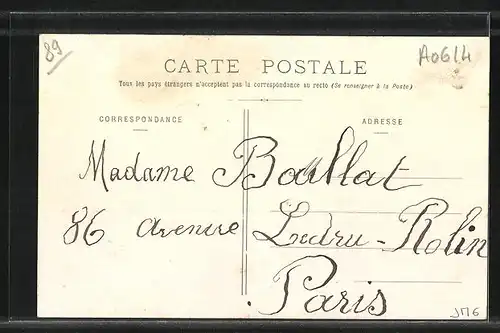 89
A0614
CARTE POSTALE
Tous les pays étrangers n'acceptent pas la correspondance au recto (Se renseigner à la Poste)
CORRESPONDANCE
ADRESSE
Madame Baillat
86 Avenue Ledru-Rolin
Paris
JM6